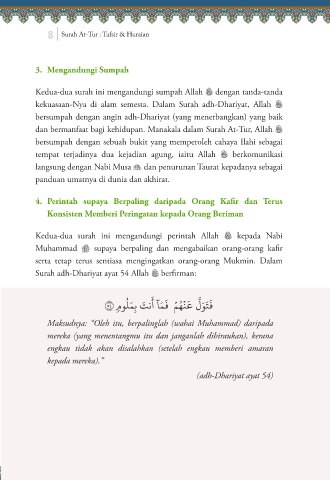 8 Surah At-Tur : Tafsir & Huraian
3. Mengandungi Sumpah
Kedua-dua surah ini mengandungi sumpah Allah ﷻ dengan tanda-tanda
kekuasaan-Nya di alam semesta. Dalam Surah adh-Dhariyat, Allah ﷻ
bersumpah dengan angin adh-Dhariyat (yang menerbangkan) yang baik
dan bermanfaat bagi kehidupan. Manakala dalam Surah At-Tur, Allah ﷻ
bersumpah dengan sebuah bukit yang memperoleh cahaya Ilahi sebagai
tempat terjadinya dua kejadian agung, iaitu Allah ﷻ berkomunikasi
langsung dengan Nabi Musa dan penurunan Taurat kepadanya sebagai
panduan umatnya di dunia dan akhirat.
4. Perintah supaya Berpaling daripada Orang Kafir dan Terus
Konsisten Memberi Peringatan kepada Orang Beriman
Kedua-dua surah ini mengandungi perintah Allah ﷻ kepada Nabi
Muhammad ﷺ supaya berpaling dan mengabaikan orang-orang kafir
serta tetap terus sentiasa mengingatkan orang-orang Mukmin. Dalam
Surah adh-Dhariyat ayat 54 Allah ﷻ berfirman:
فَتَوَلَّ عَنْهُمْ فَمَآ أَنتَ بِمَلُومٍ ۝٥٤
Maksudnya: "Oleh itu, berpalinglah (wahai Muhammad) daripada
mereka (yang menentangmu itu dan janganlah dihiraukan), kerana
engkau tidak akan disalahkan (setelah engkau memberi amaran
kepada mereka)."
(adh-Dhariyat ayat 54)